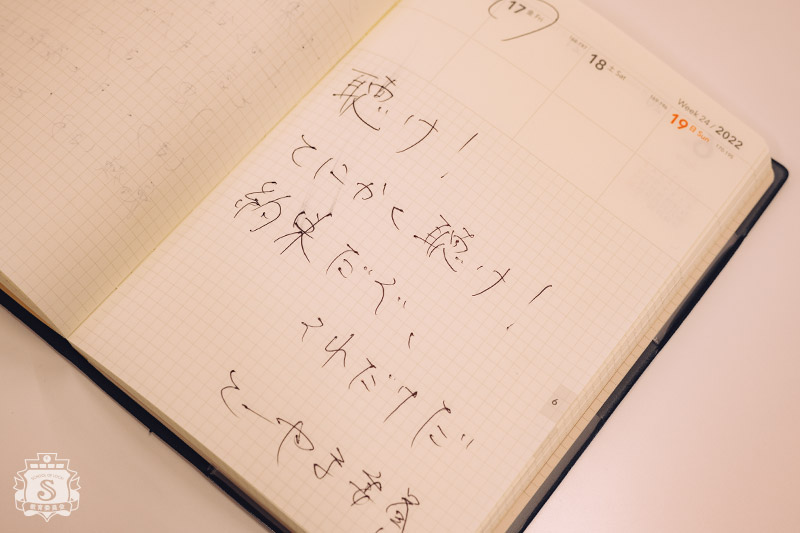 17 金 Fri
18 土 Sat
Week 24 / 2022
19 日 Sun
聴け!
とにかく聴け!
約束だぞ、
それだけだ
とーやま委員
6
S